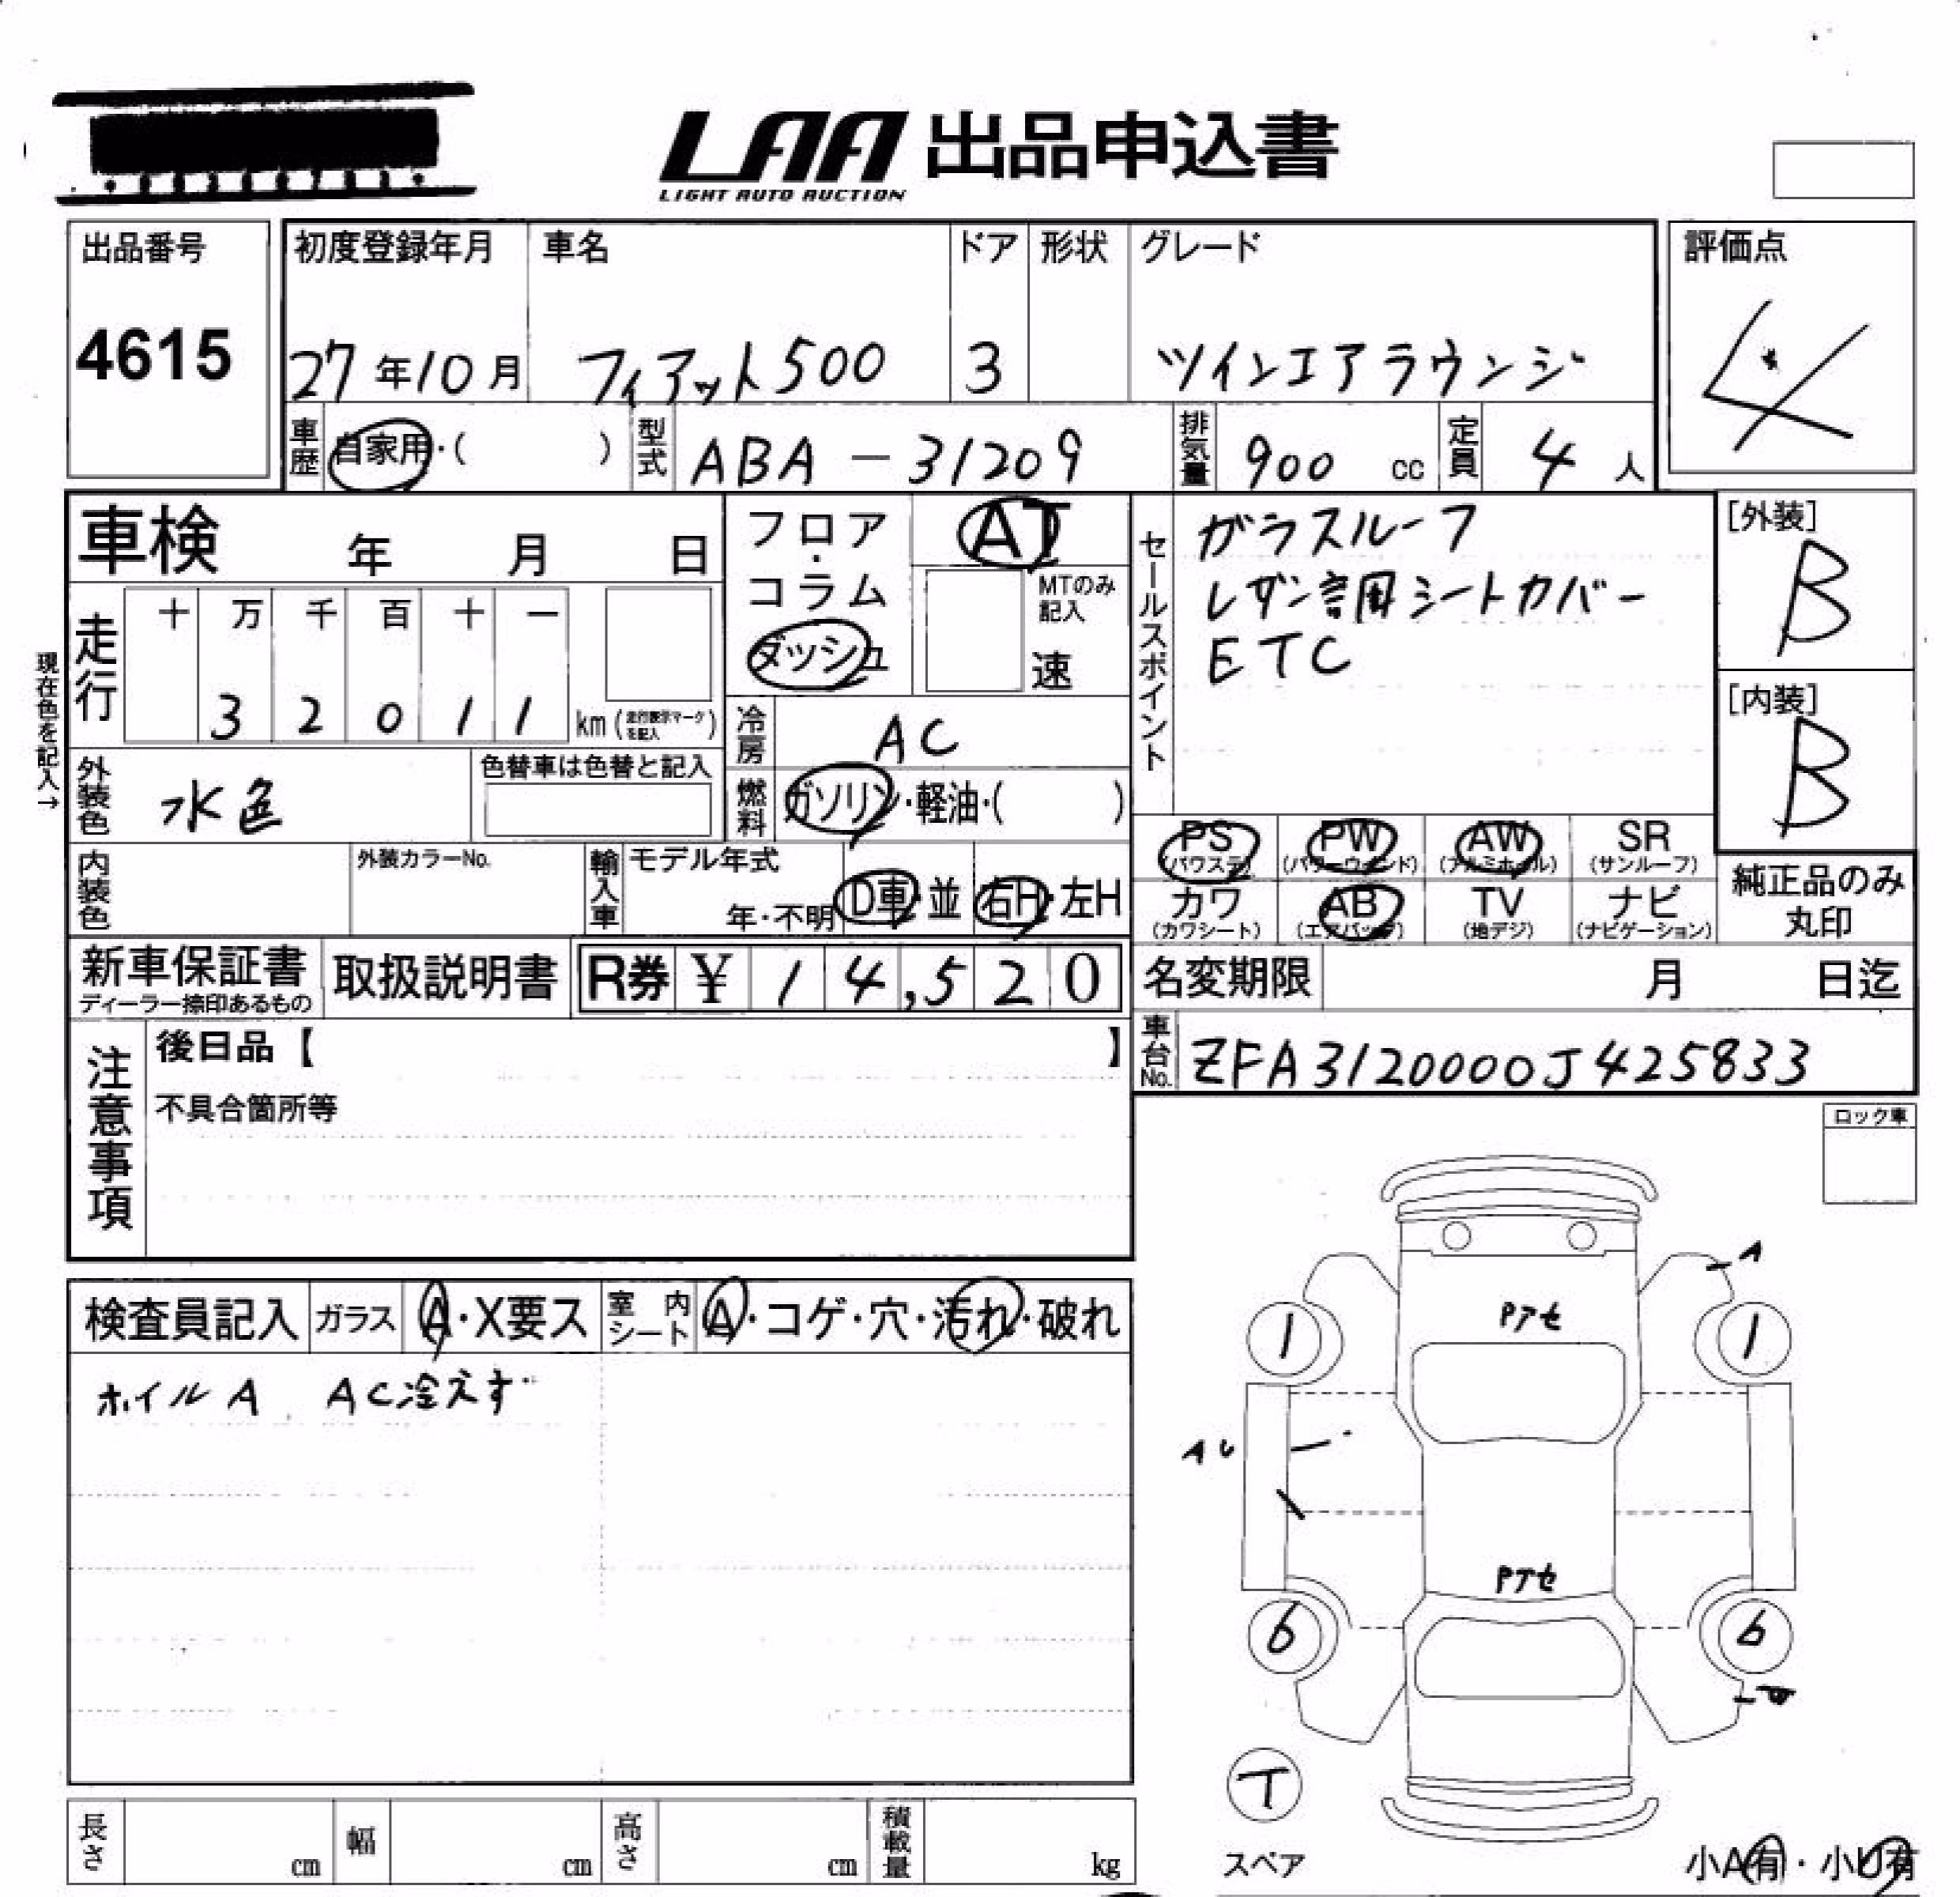 LAA 出品申込書
LIGHT AUTO AUCTION
出品番号
4615
初度登録年月
27年10月
車名
フィアット500
ドア
3
形状
グレード
ツインエアラウンジ
評価点
4
車歴
自家用・( )
型式
ABA-31209
排気量
900 cc
定員
4人
車検 年 月 日
フロア・コラム
ダッシュ
AT
MTのみ記入
速
セールスポイント
ガラスルーフ
レザー専用シートカバー
ETC
[外装]
B
[内装]
B
現在色を記入→
走行
十 万 千 百 十 一
3 2 0 1 1 km (走行表示マークを記入)
冷房
AC
外装色
水色
色替車は色替と記入
燃料
ガソリン・軽油・( )
内装色
外装カラーNo.
輸入車
モデル年式
年・不明
D車・並
右H・左H
PS (パワステ)
PW (パワーウィンド)
AW (アルミホイル)
SR (サンルーフ)
カワ (カワシート)
AB (エアバッグ)
TV (地デジ)
ナビ (ナビゲーション)
純正品のみ
丸印
新車保証書
ディーラー捺印あるもの
取扱説明書
R券 ¥ 14,520
名変期限 月 日迄
車台No.
ZFA3120000J425833
注意事項
後日品【 】
不具合箇所等
ロック車
検査員記入
ガラス
A・X要ス
室内シート
A・コゲ・穴・汚れ・破れ
ホイルA AC冷えず
A
Pアセ
1
1
AU
Pアセ
6
6
T
スペア
長さ cm
幅 cm
高さ cm
積載量 kg
小A有・小U有